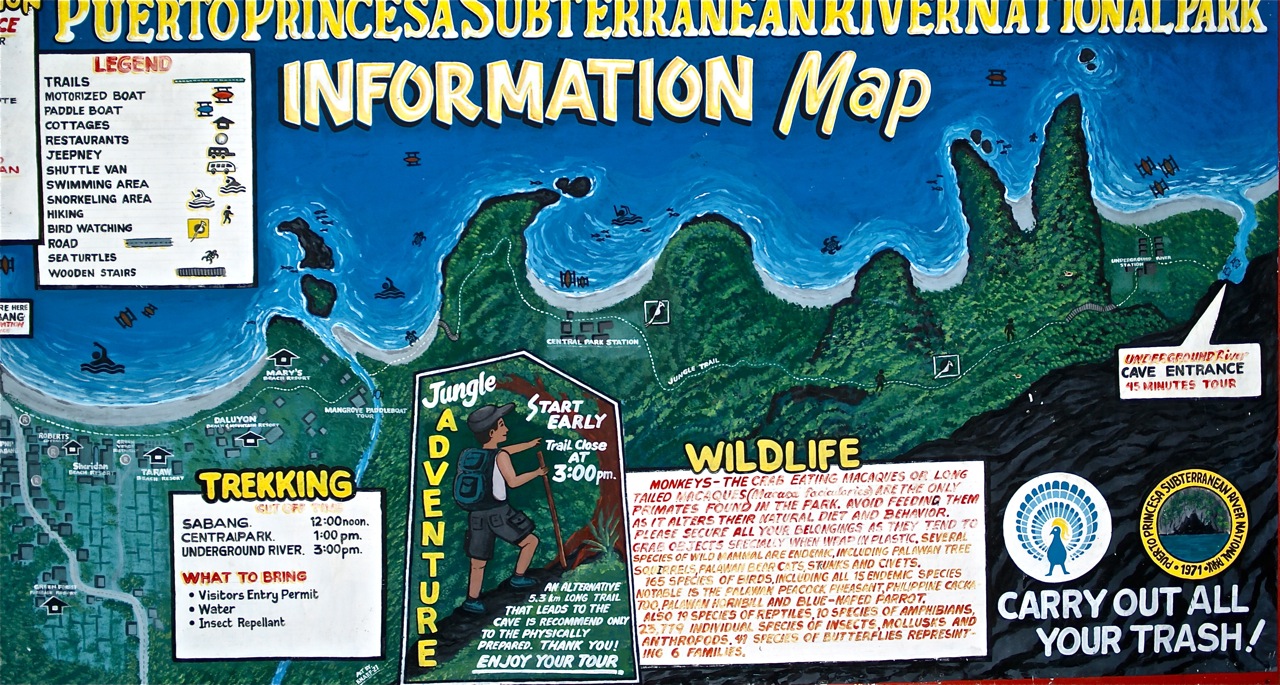 PUERTO PRINCESA SUBTERRANEAN RIVER NATIONAL PARK
INFORMATION Map
LEGEND
TRAILS
MOTORIZED BOAT
PADDLE BOAT
COTTAGES
RESTAURANTS
JEEPNEY
SHUTTLE VAN
SWIMMING AREA
SNORKELING AREA
HIKING
BIRD WATCHING
ROAD
SEA TURTLES
WOODEN STAIRS
RE HERE
BANG
MARY'S
BEACH RESORT
DALUYON
BEACH & MOUNTAIN RESORT
MANGROVE PADDLEBOAT
TOUR
ROBERTS
Sheridan
BEACH RESORT
TARAW
BEACH RESORT
CENTRAL PARK STATION
JUNGLE TRAIL
UNDERGROUND RIVER
STATION
UNDERGROUND River
CAVE ENTRANCE
45 MINUTES TOUR
TREKKING
CUT OFF TIME
SABANG. 12:00 noon.
CENTRAL PARK. 1:00 pm.
UNDERGROUND RIVER. 3:00 pm.
WHAT TO BRING
• Visitors Entry Permit
• Water
• Insect Repellant
Jungle
ADVENTURE
START
EARLY
Trail Close
AT
3:00 pm.
AN ALTERNATIVE
5.3 km LONG TRAIL
THAT LEADS TO THE
CAVE IS RECOMMEND ONLY
TO THE PHYSICALLY
PREPARED. THANK YOU!
ENJOY YOUR TOUR
WILDLIFE
MONKEYS - THE CRAB EATING MACAQUES OR LONG
TAILED MACAQUES (Macaca fascicularis) ARE THE ONLY
PRIMATES FOUND IN THE PARK. AVOID FEEDING THEM
AS IT ALTERS THEIR NATURAL DIET AND BEHAVIOR.
PLEASE SECURE ALL YOUR BELONGINGS AS THEY TEND TO
GRAB OBJECTS SPECIALLY WHEN WRAP IN PLASTIC. SEVERAL
SPECIES OF WILD MAMMAL ARE ENDEMIC, INCLUDING PALAWAN TREE
SQUIRRELS, PALAWAN BEAR CATS, STUNKS AND CIVETS.
165 SPECIES OF BIRDS, INCLUDING ALL 15 ENDEMIC SPECIES
NOTABLE IS THE PALAWAN PEACOCK PHEASANT, PHILIPPINE CACKA-
TOO, PALAWAN HORNBILL AND BLUE-NAPED PARROT.
ALSO 19 SPECIES OF REPTILES, 10 SPECIES OF AMPHIBIANS,
23,779 INDIVIDUAL SPECIES OF INSECTS, MOLLUSKS AND
ANTHROPODS, 49 SPECIES OF BUTTERFLIES REPRESINT-
ING 6 FAMILIES.
PUERTO PRINCESA SUBTERRANEAN RIVER NATIONAL PARK
• 1971 •
CARRY OUT ALL
YOUR TRASH!